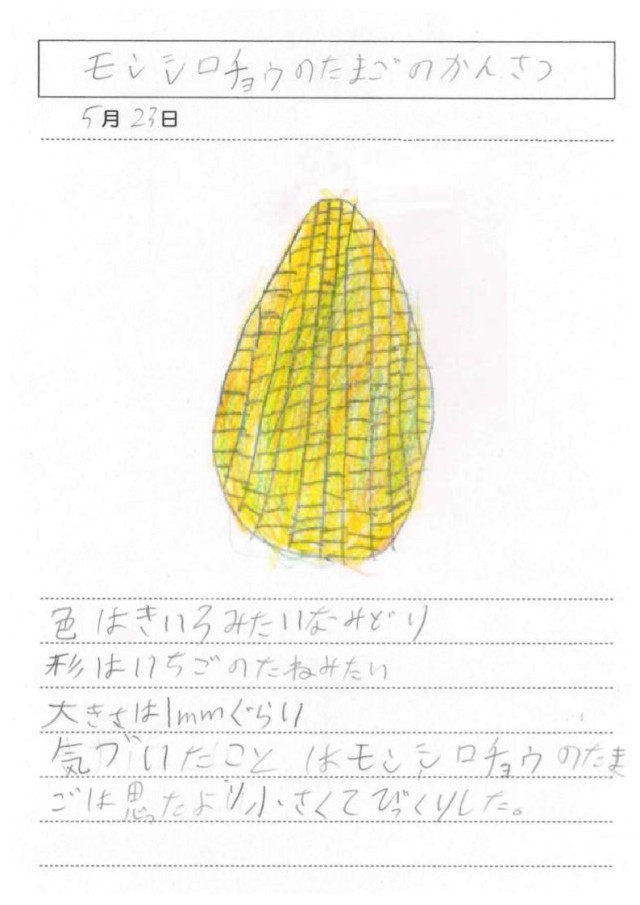 モンシロチョウのたまごのかんさつ
5月23日
色はきいろみたいなみどり
形はいちごのたねみたい
大きさは1mmぐらい
気づいたことはモンシロチョウのたま
ごは思ったより小さくてびっくりした。